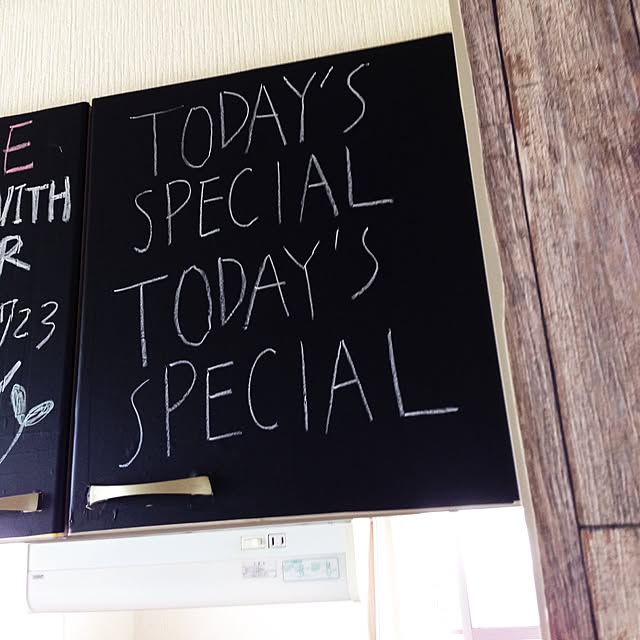 E
WITH
R
23
TODAY'S
SPECIAL
TODAY'S
SPECIAL